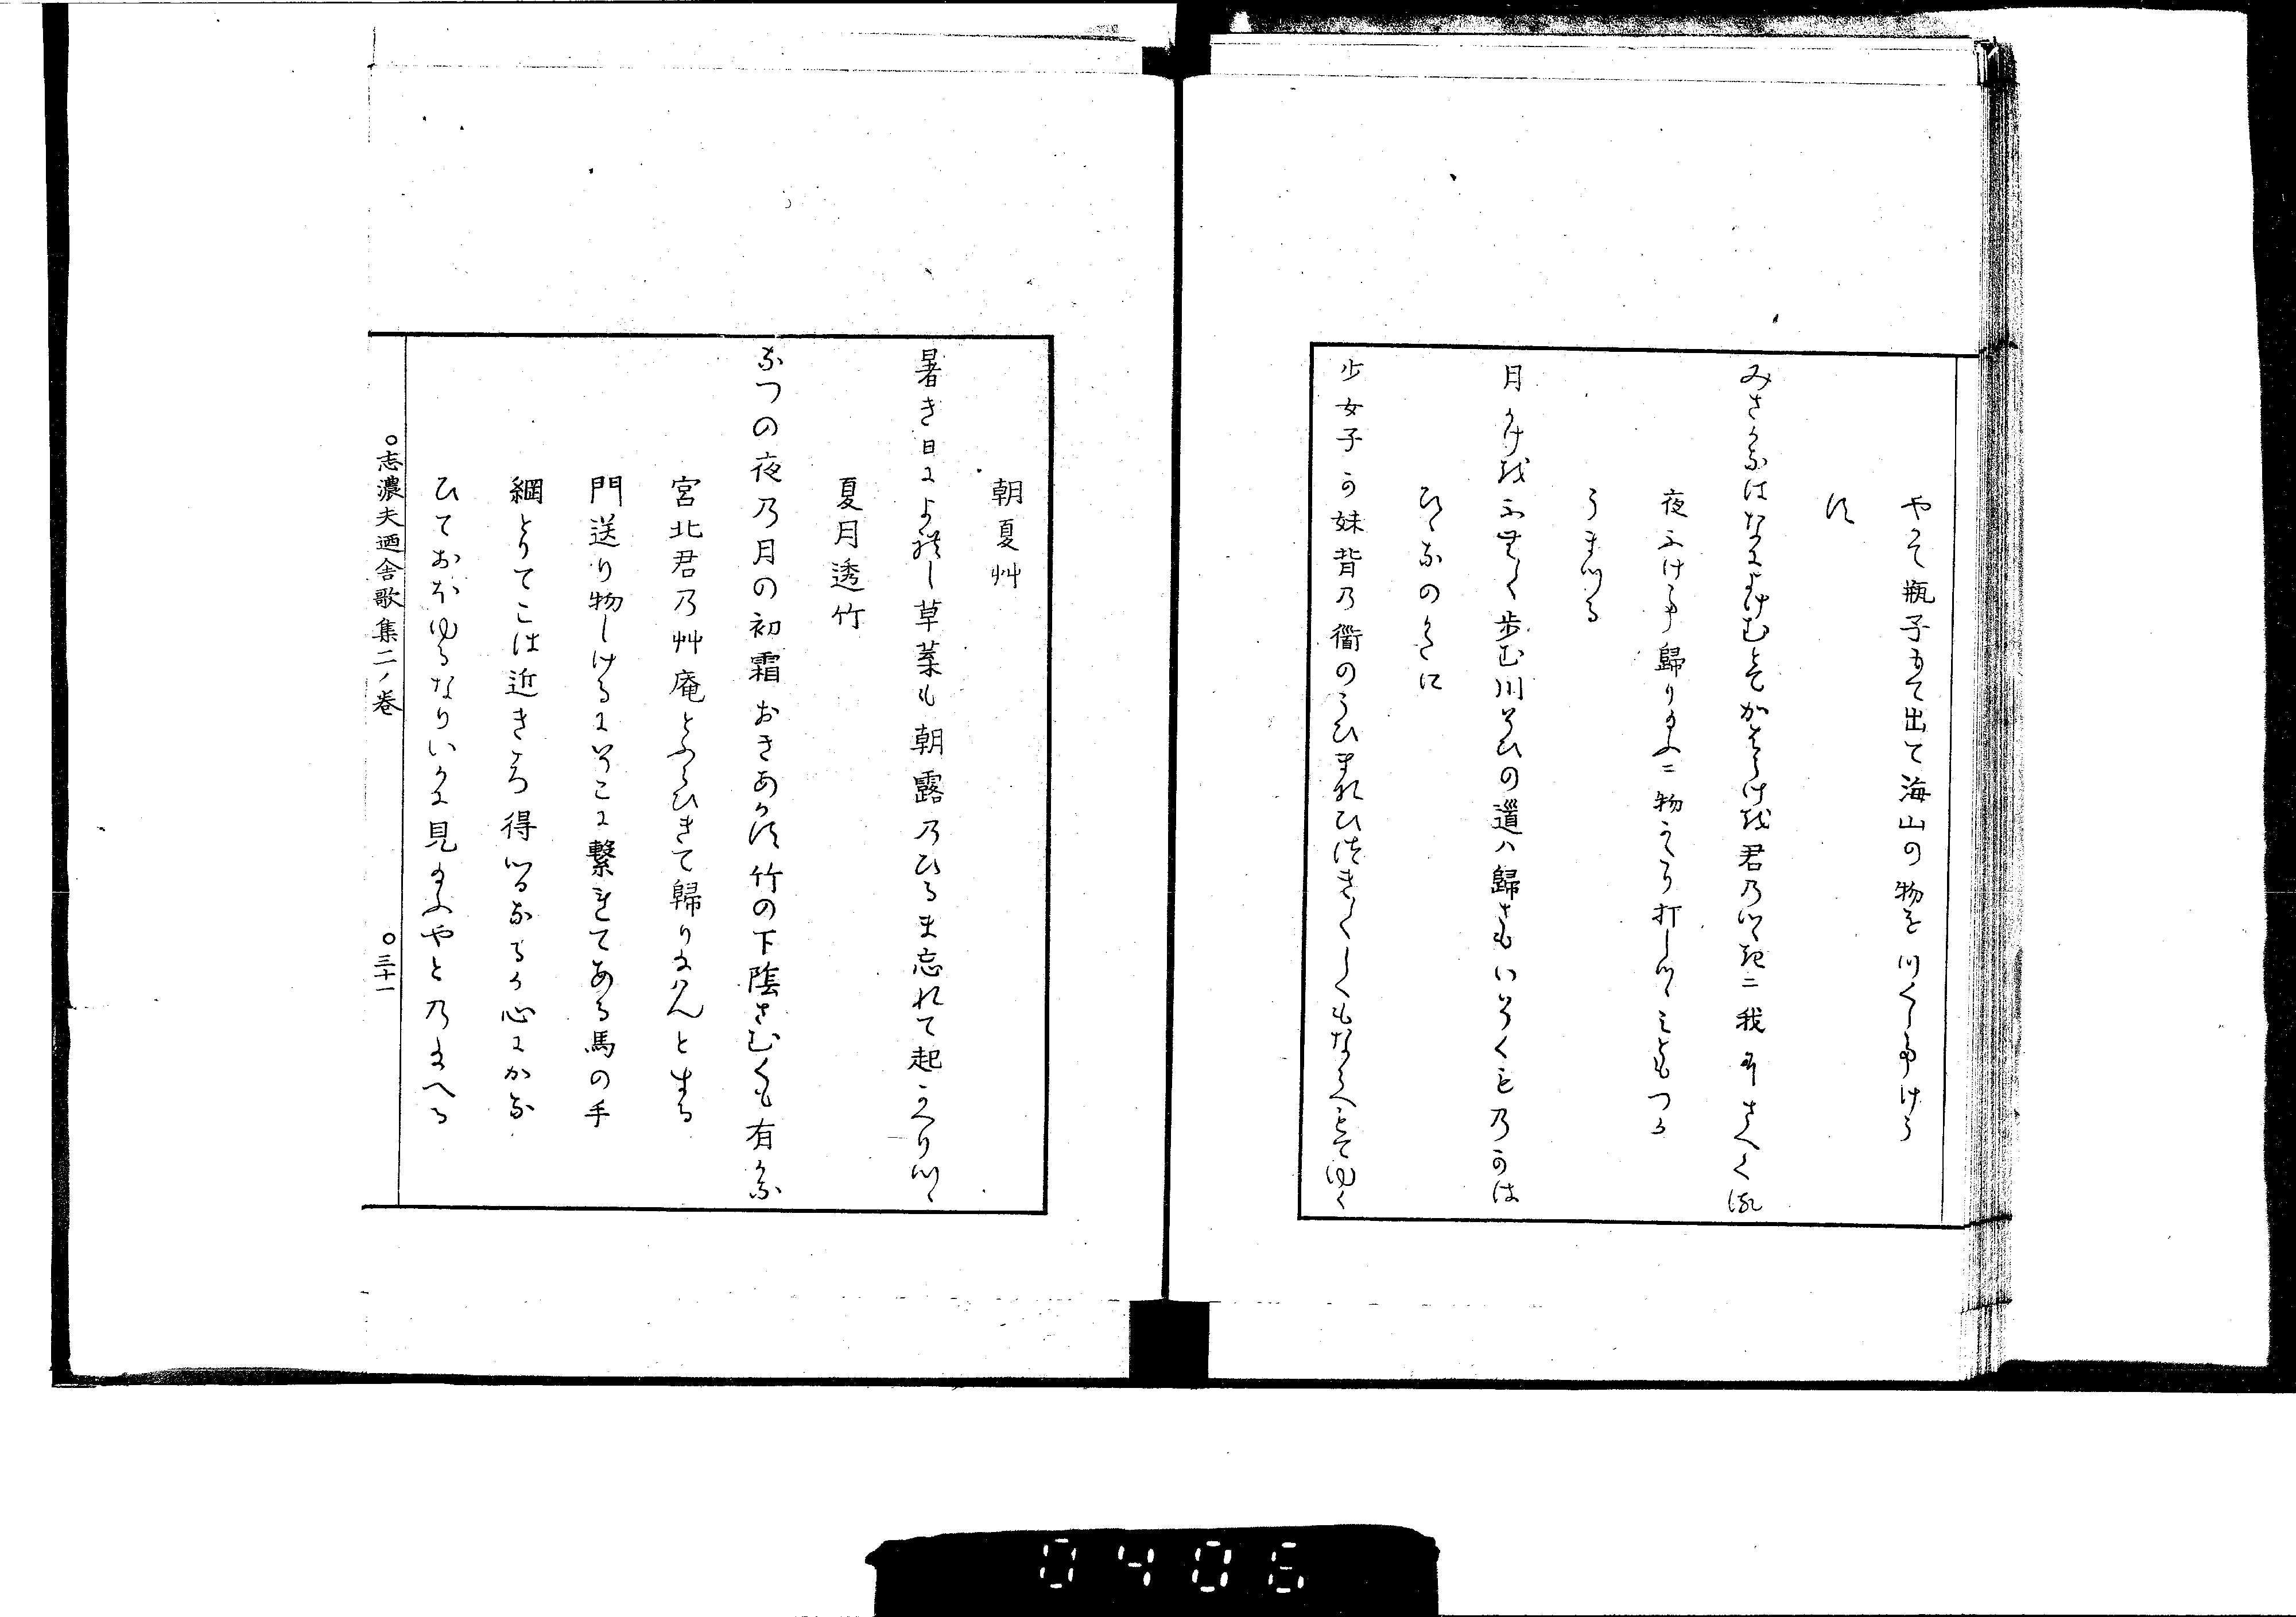 やがて瓶子もて出て海山の物をつくし侍けら
す
みさかなはなによけむとてかはらけを君乃つまに我にさへくる
夜ふけ侍り歸り給ふニ物かたり打しつゝみともつか
うまつる
月かけをふせく歩む川そひの道ハ歸さもいそくもの可は
ひゝなのかたに
少女子可妹背乃衢のうひまれひはきくしくもならへとてゆく
朝夏艸
暑き日によれし草葉も朝露乃ひるま忘れて起かへりつゝ
夏月透竹
なつの夜乃月の初霜おきあかす竹の下陰さむくも有かな
宮北君乃艸庵とふらひきて歸りなんとする
門送り物しけるにそこに繫きてある馬の手
綱とりてこは近きころ得つるなるか心にかな
ひておほゆるなりいかに見給ふやと乃給へる
○志濃夫廼舍歌集二ノ巻
○三十一
0406